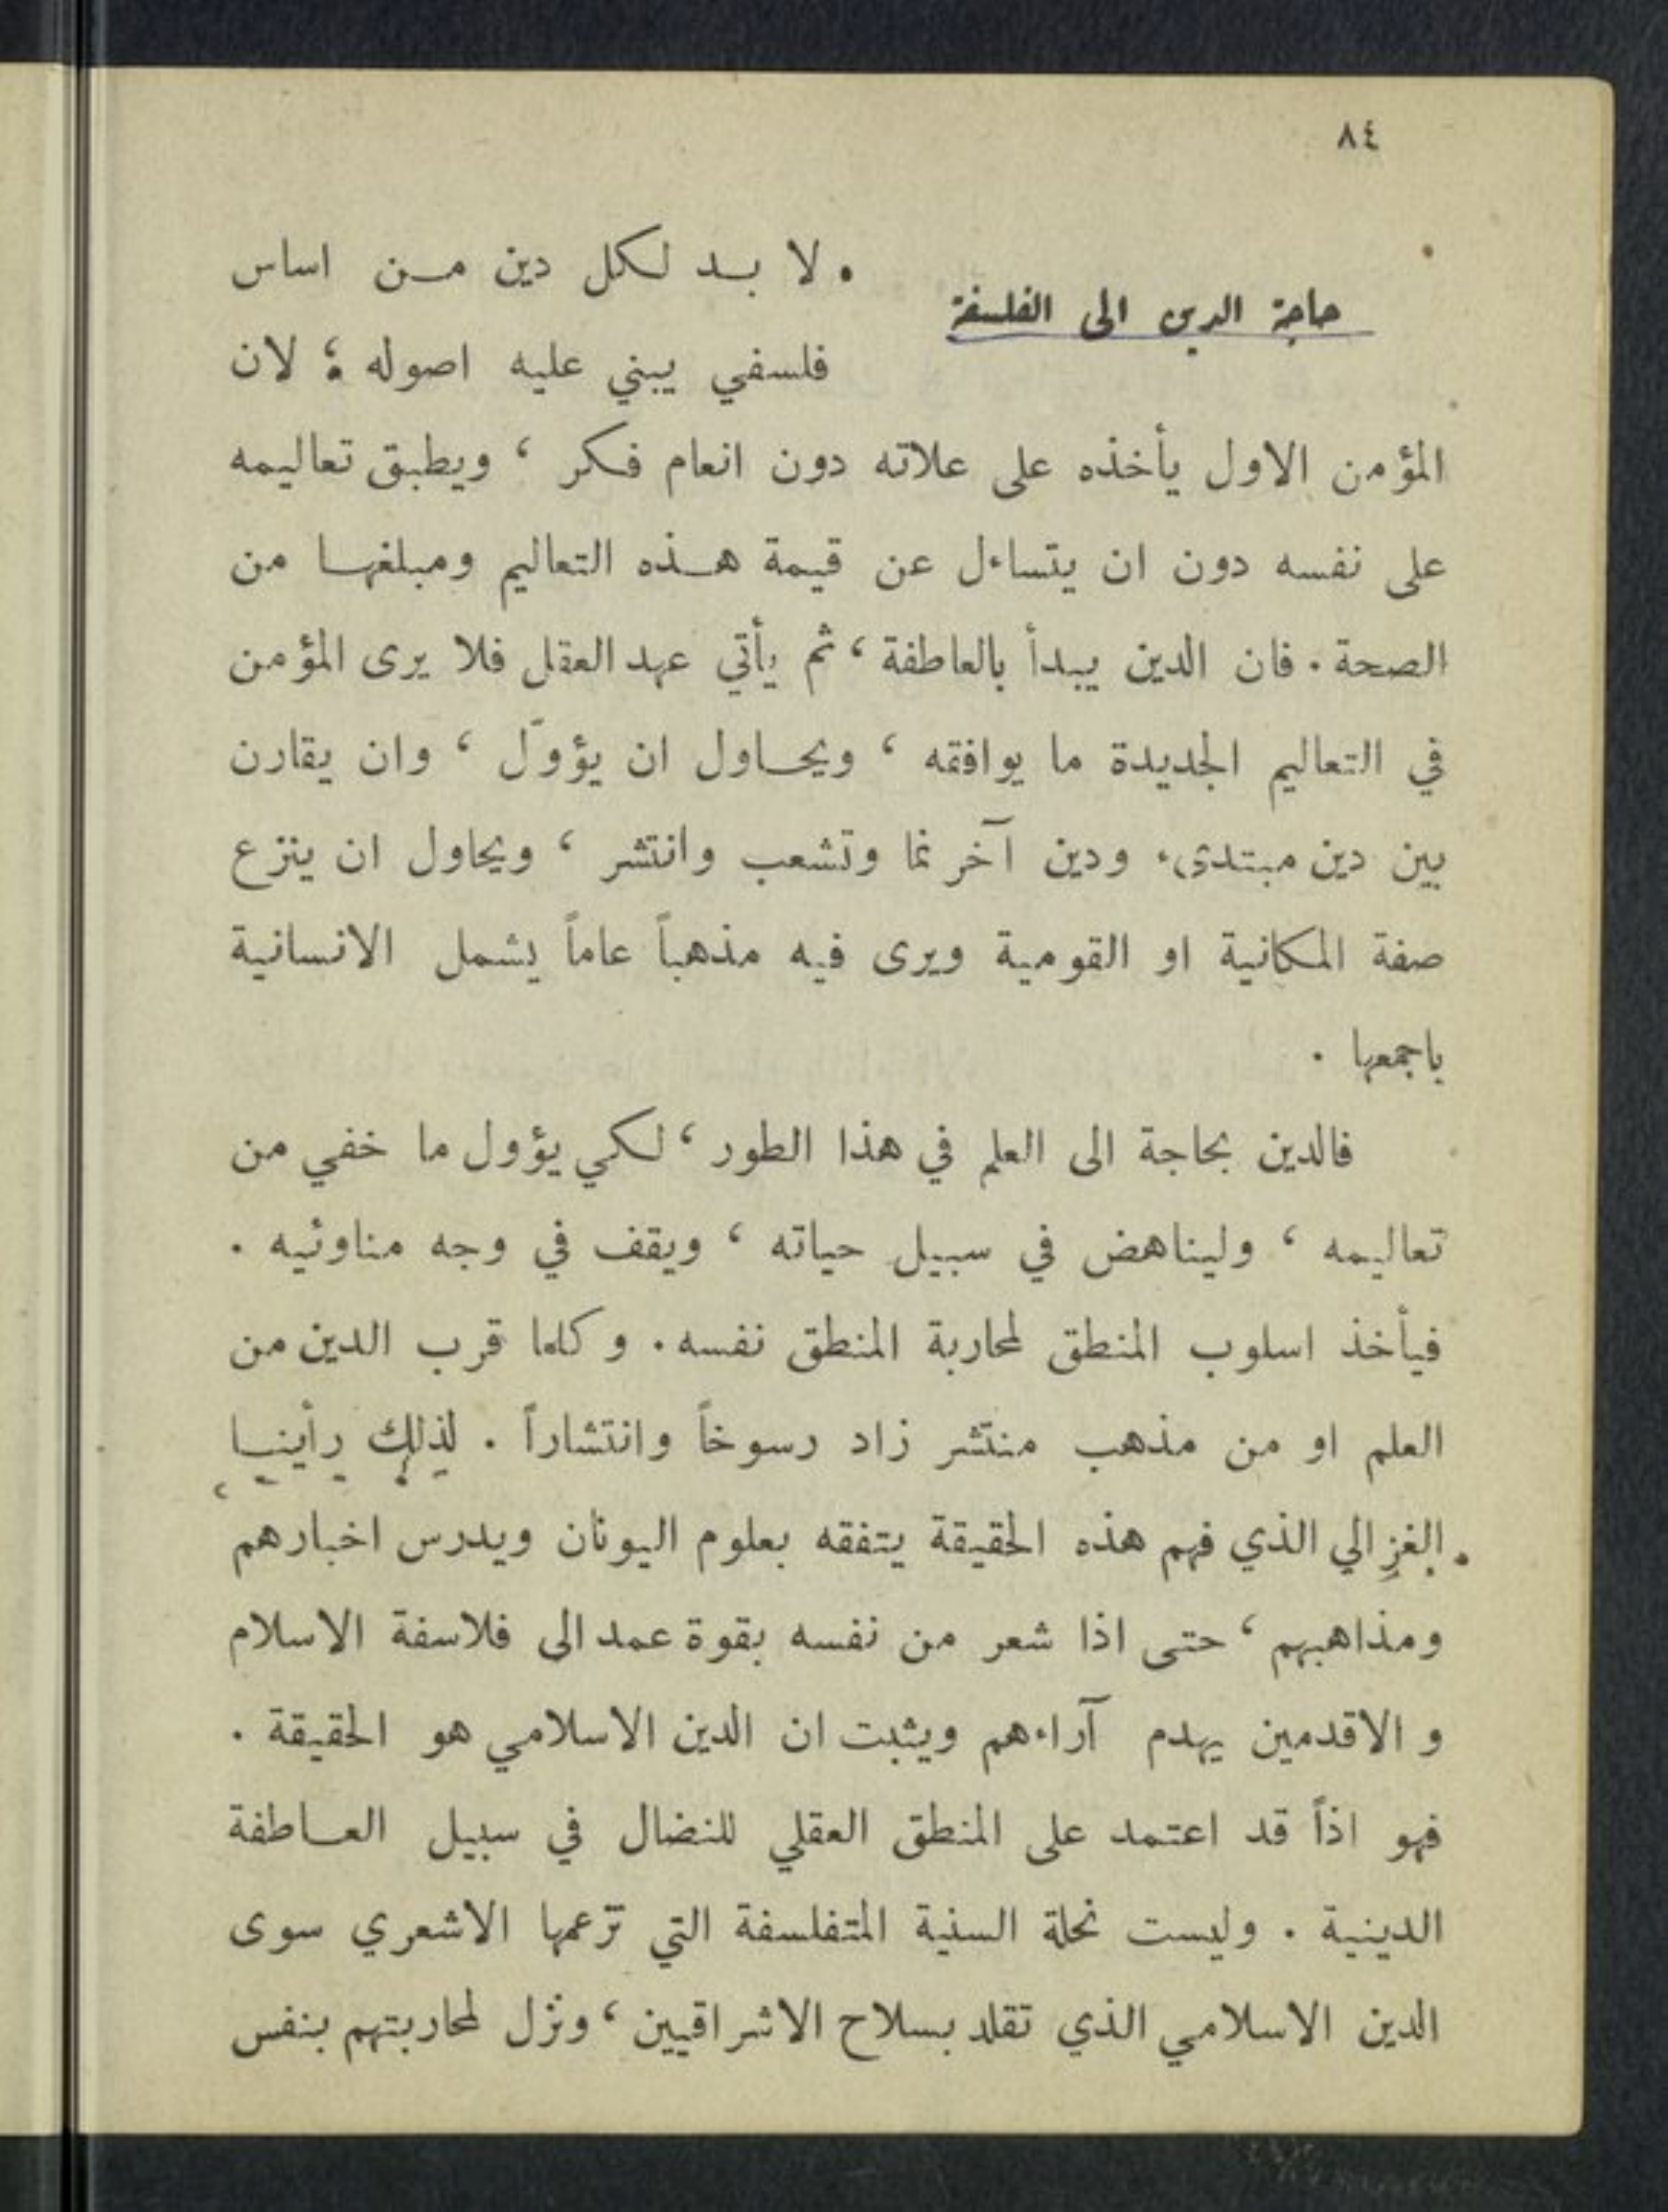 ٨٤
حاجة الدين الى الفلسفة
لا بد لكل دين من اساس
فلسفي يبني عليه اصوله ؛ لان
المؤمن الاول يأخذه على علاته دون انعام فكر ، ويطبق تعاليمه
على نفسه دون ان يتساءل عن قيمة هذه التعاليم ومبلغها من
الصحة . فان الدين يبدأ بالعاطفة ، ثم يأتي عهد العقل فلا يرى المؤمن
في التعاليم الجديدة ما يوافقه ، ويحاول ان يؤوّل ، وان يقارن
بين دين مبتدىء ودين آخر نما وتشعب وانتشر ، ويحاول ان ينزع
صفة المكانية او القومية ويرى فيه مذهباً عاماً يشمل الانسانية
باجمعها .
فالدين بحاجة الى العلم في هذا الطور ، لكي يؤول ما خفي من
تعاليمه ، وليناهض في سبيل حياته ، ويقف في وجه مناوئيه .
فيأخذ اسلوب المنطق لمحاربة المنطق نفسه . وكلما قرب الدين من
العلم او من مذهب منتشر زاد رسوخاً وانتشاراً . لذلك رأينا
الغزالي الذي فهم هذه الحقيقة يتفقه بعلوم اليونان ويدرس اخبارهم
ومذاهبهم ، حتى اذا شعر من نفسه بقوة عمد الى فلاسفة الاسلام
و الاقدمين يهدم آراءهم ويثبت ان الدين الاسلامي هو الحقيقة .
فهو اذاً قد اعتمد على المنطق العقلي للنضال في سبيل العاطفة
الدينية . وليست نحلة السنية المتفلسفة التي تزعمها الاشعري سوى
الدين الاسلامي الذي تقلد بسلاح الاشراقيين ، ونزل لمحاربتهم بنفس